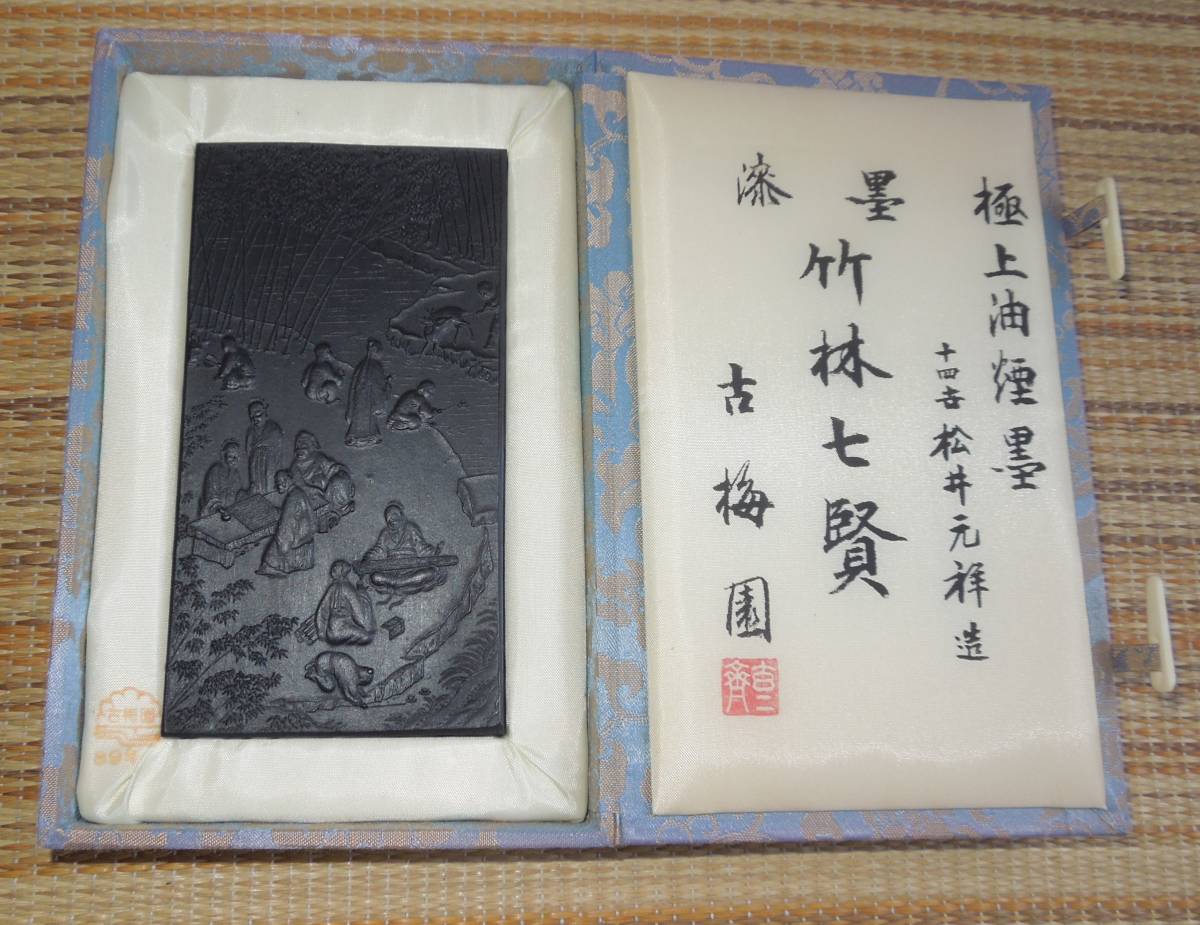 極上油煙墨
十四世松井元祥造
墨
竹林七賢
漆
古梅園